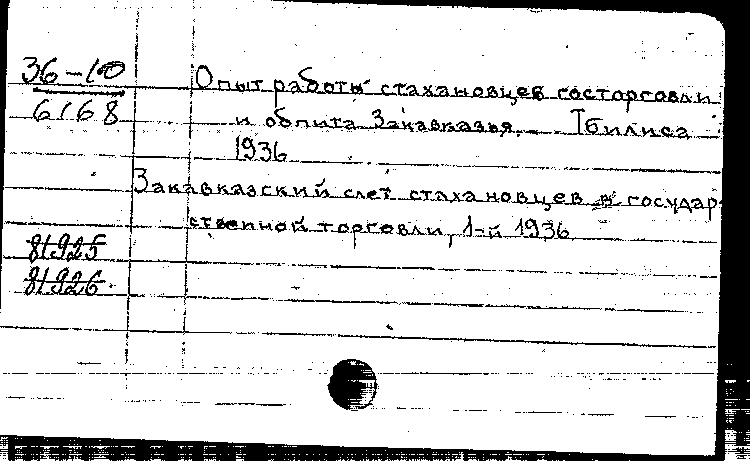 36-10
6168
Опыт работы стахановцев госторговли
и общита Закавказья. Тбилиси
1936
Закавказский слет стахановцев государ-
ственной торговли, 1-й 1936
81925
81926